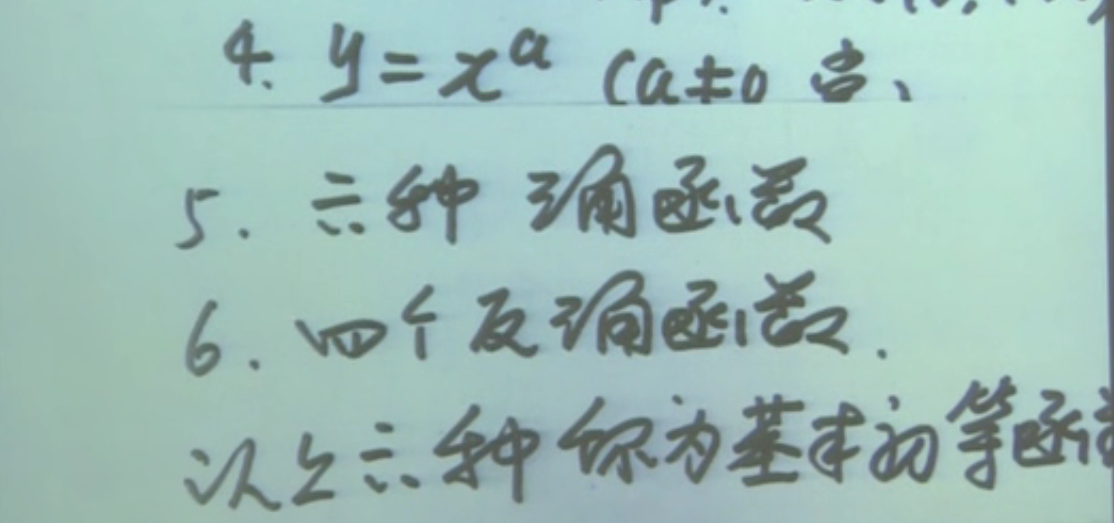 4. y = x^a (a≠0
5. 六种 三角函数
6. 四个反三角函数.
以上六种称为基本初等函